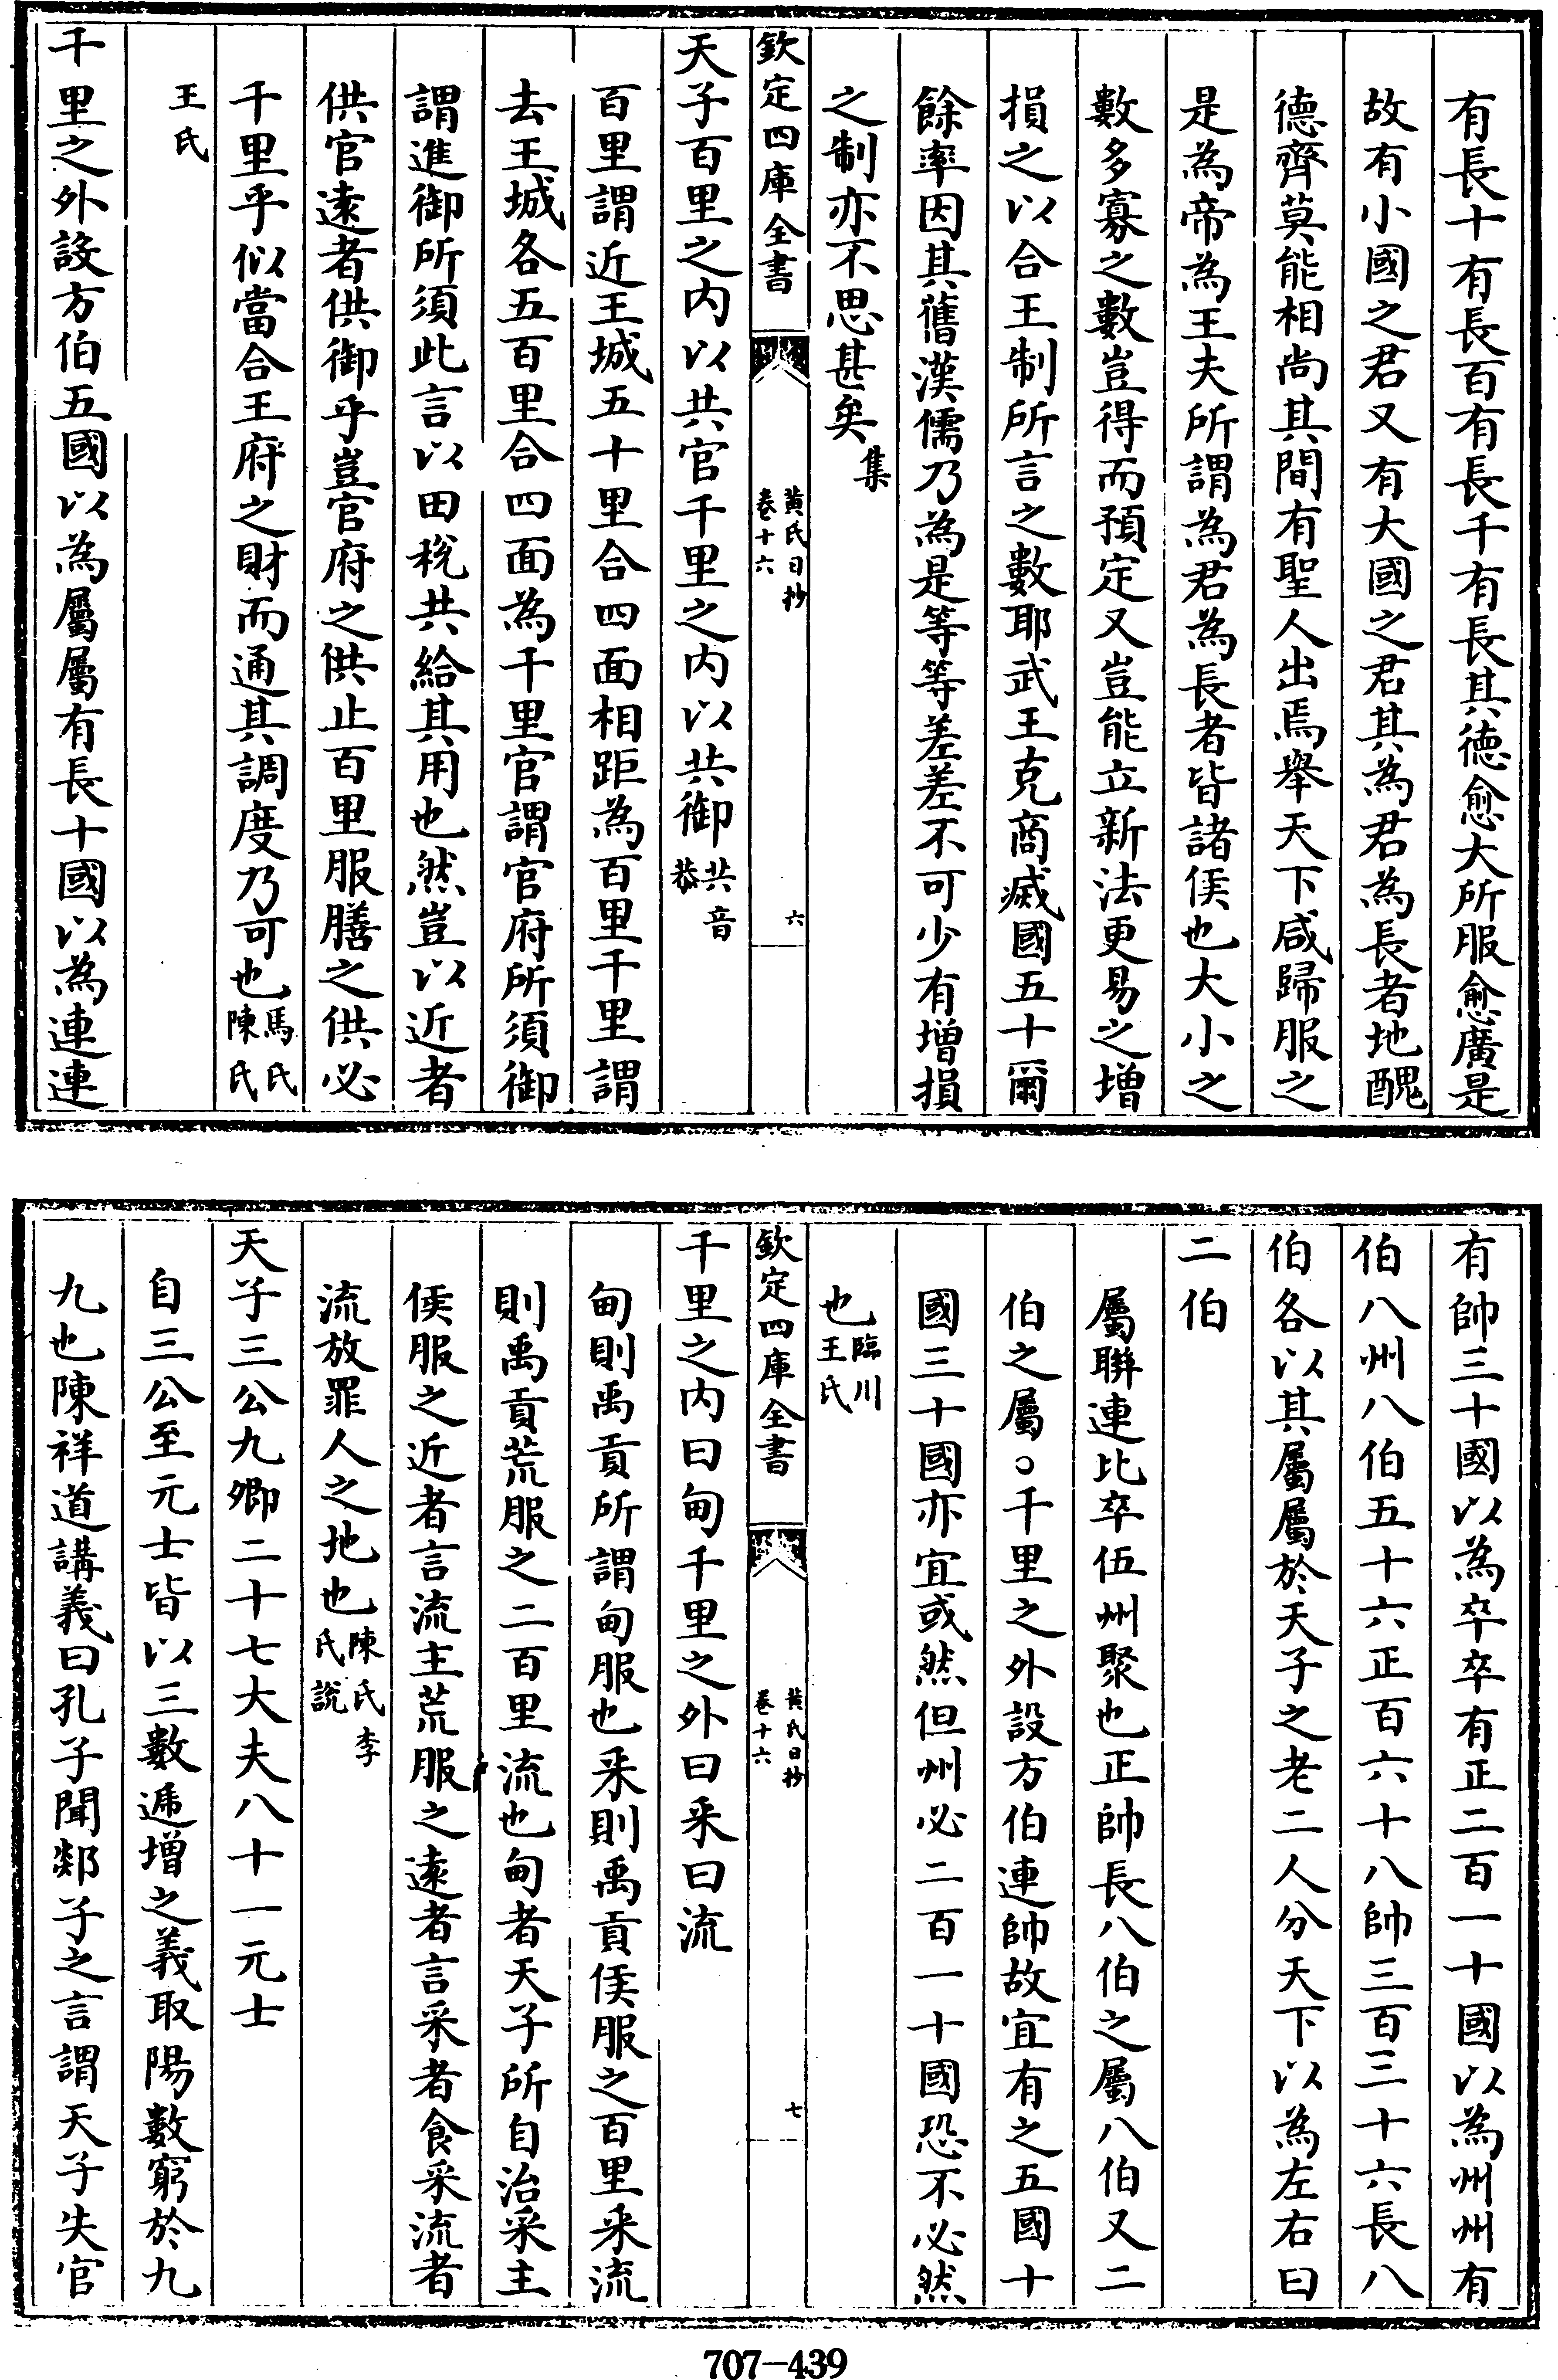 有長十有長百有長千有長其徳愈大所服愈廣是
故有小國之君又有大國之君其為君為長者地醜
德齊莫能相尚其間有聖人出焉舉天下咸歸服之
是為帝為王夫所謂為君為長者皆諸侯也大小之
數多寡之數豈得而預定又豈能立新法更易之增
損之以合王制所言之數耶武王克商滅國五十爾
餘率因其舊漢儒乃為是等等差差不可少有増損
之制亦不思甚矣集
欽定四庫全書
黄氏日抄
卷十六
六
天子百里之内以共官千里之内以共御共音
恭
百里謂近王城五十里合四面相距為百里千里謂
去王城各五百里合四面為千里官謂官府所須御
謂進御所須此言以田稅共給其用也然豈以近者
供官遠者供御乎豈官府之供止百里服膳之供必
千里乎似當合王府之財而通其調度乃可也馬氏
陳氏
王氏
千里之外設方伯五國以為屬屬有長十國以為連連
有帥三十國以為卒卒有正二百一十國以為州州有
伯八州八伯五十六正百六十八帥三百三十六長八
伯各以其屬屬於天子之老二人分天下以為左右曰
二伯
屬聯連比卒伍州聚也正帥長八伯之屬八伯又二
伯之屬○千里之外設方伯連帥故宜有之五國十
國三十國亦宜或然但州必二百一十國恐不必然
也臨川
王氏
欽定四庫全書
黄氏日抄
卷十六
七
千里之内曰甸千里之外曰采曰流
甸則禹貢所謂甸服也采則禹貢侯服之百里采流
則禹貢荒服之二百里流也甸者天子所自治采主
侯服之近者言流主荒服之遠者言采者食采流者
流放罪人之地也陳氏李
氏說
天子三公九卿二十七大夫八十一元士
自三公至元士皆以三數遞增之義取陽數窮於九
九也陳祥道講義曰孔子聞郯子之言謂天子失官
707-439